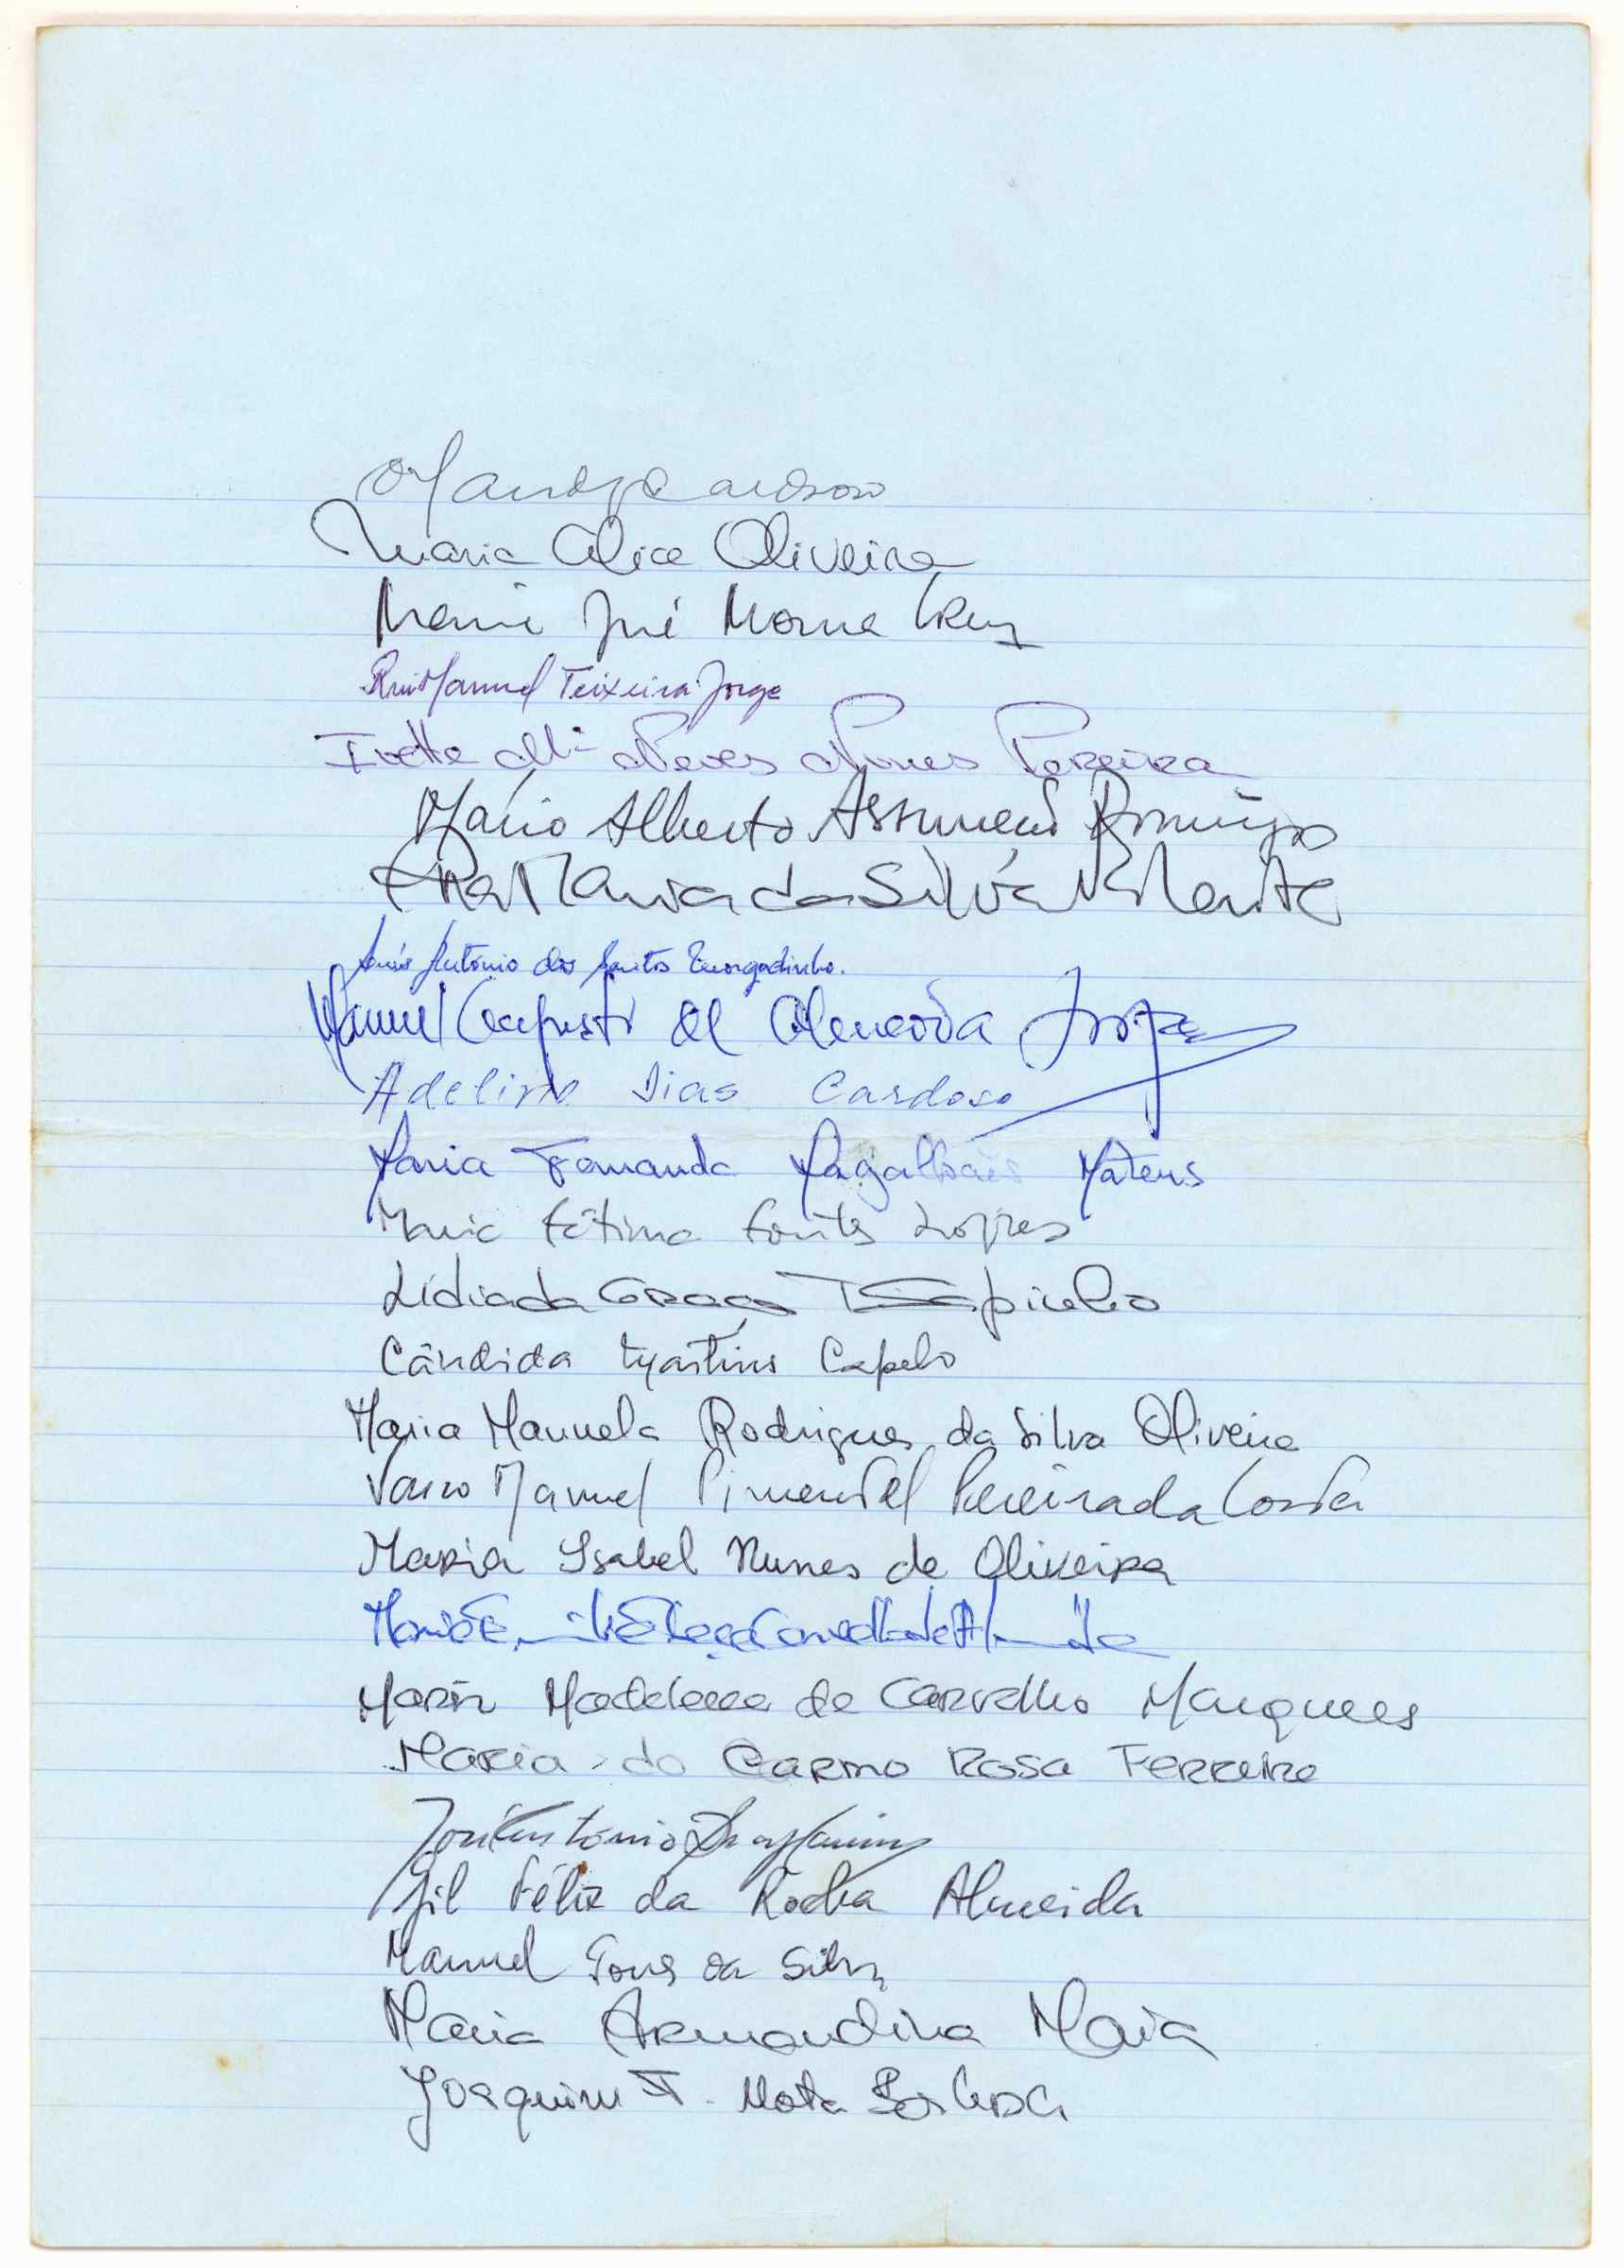 Cardoso
Maria Alice Oliveira
Maria José Morna
Rui Manuel Teixeira Jorge
Ivette Mª Neves Nunes Pereira
Mário Alberto
Ana Maria da Silva Valente
António dos Santos
Manuel Augusto de Almeida
Adelino Dias Cardoso
Maria Fernanda Magalhães Mateus
Maria Fátima Fontes Lopes
Lídia da Graça
Cândida Martins Capelo
Maria Manuela Rodrigues da Silva Oliveira
Vasco Manuel Pimentel Pereira da Costa
Maria Isabel Nunes de Oliveira
Maria
Maria Madalena de Carvalho Marques
Maria do Carmo Rosa Ferreira
José António
Gil Félix da Rocha Almeida
Manuel da Silva
Maria Armandina Maia
Joaquim F. Mota Barbosa